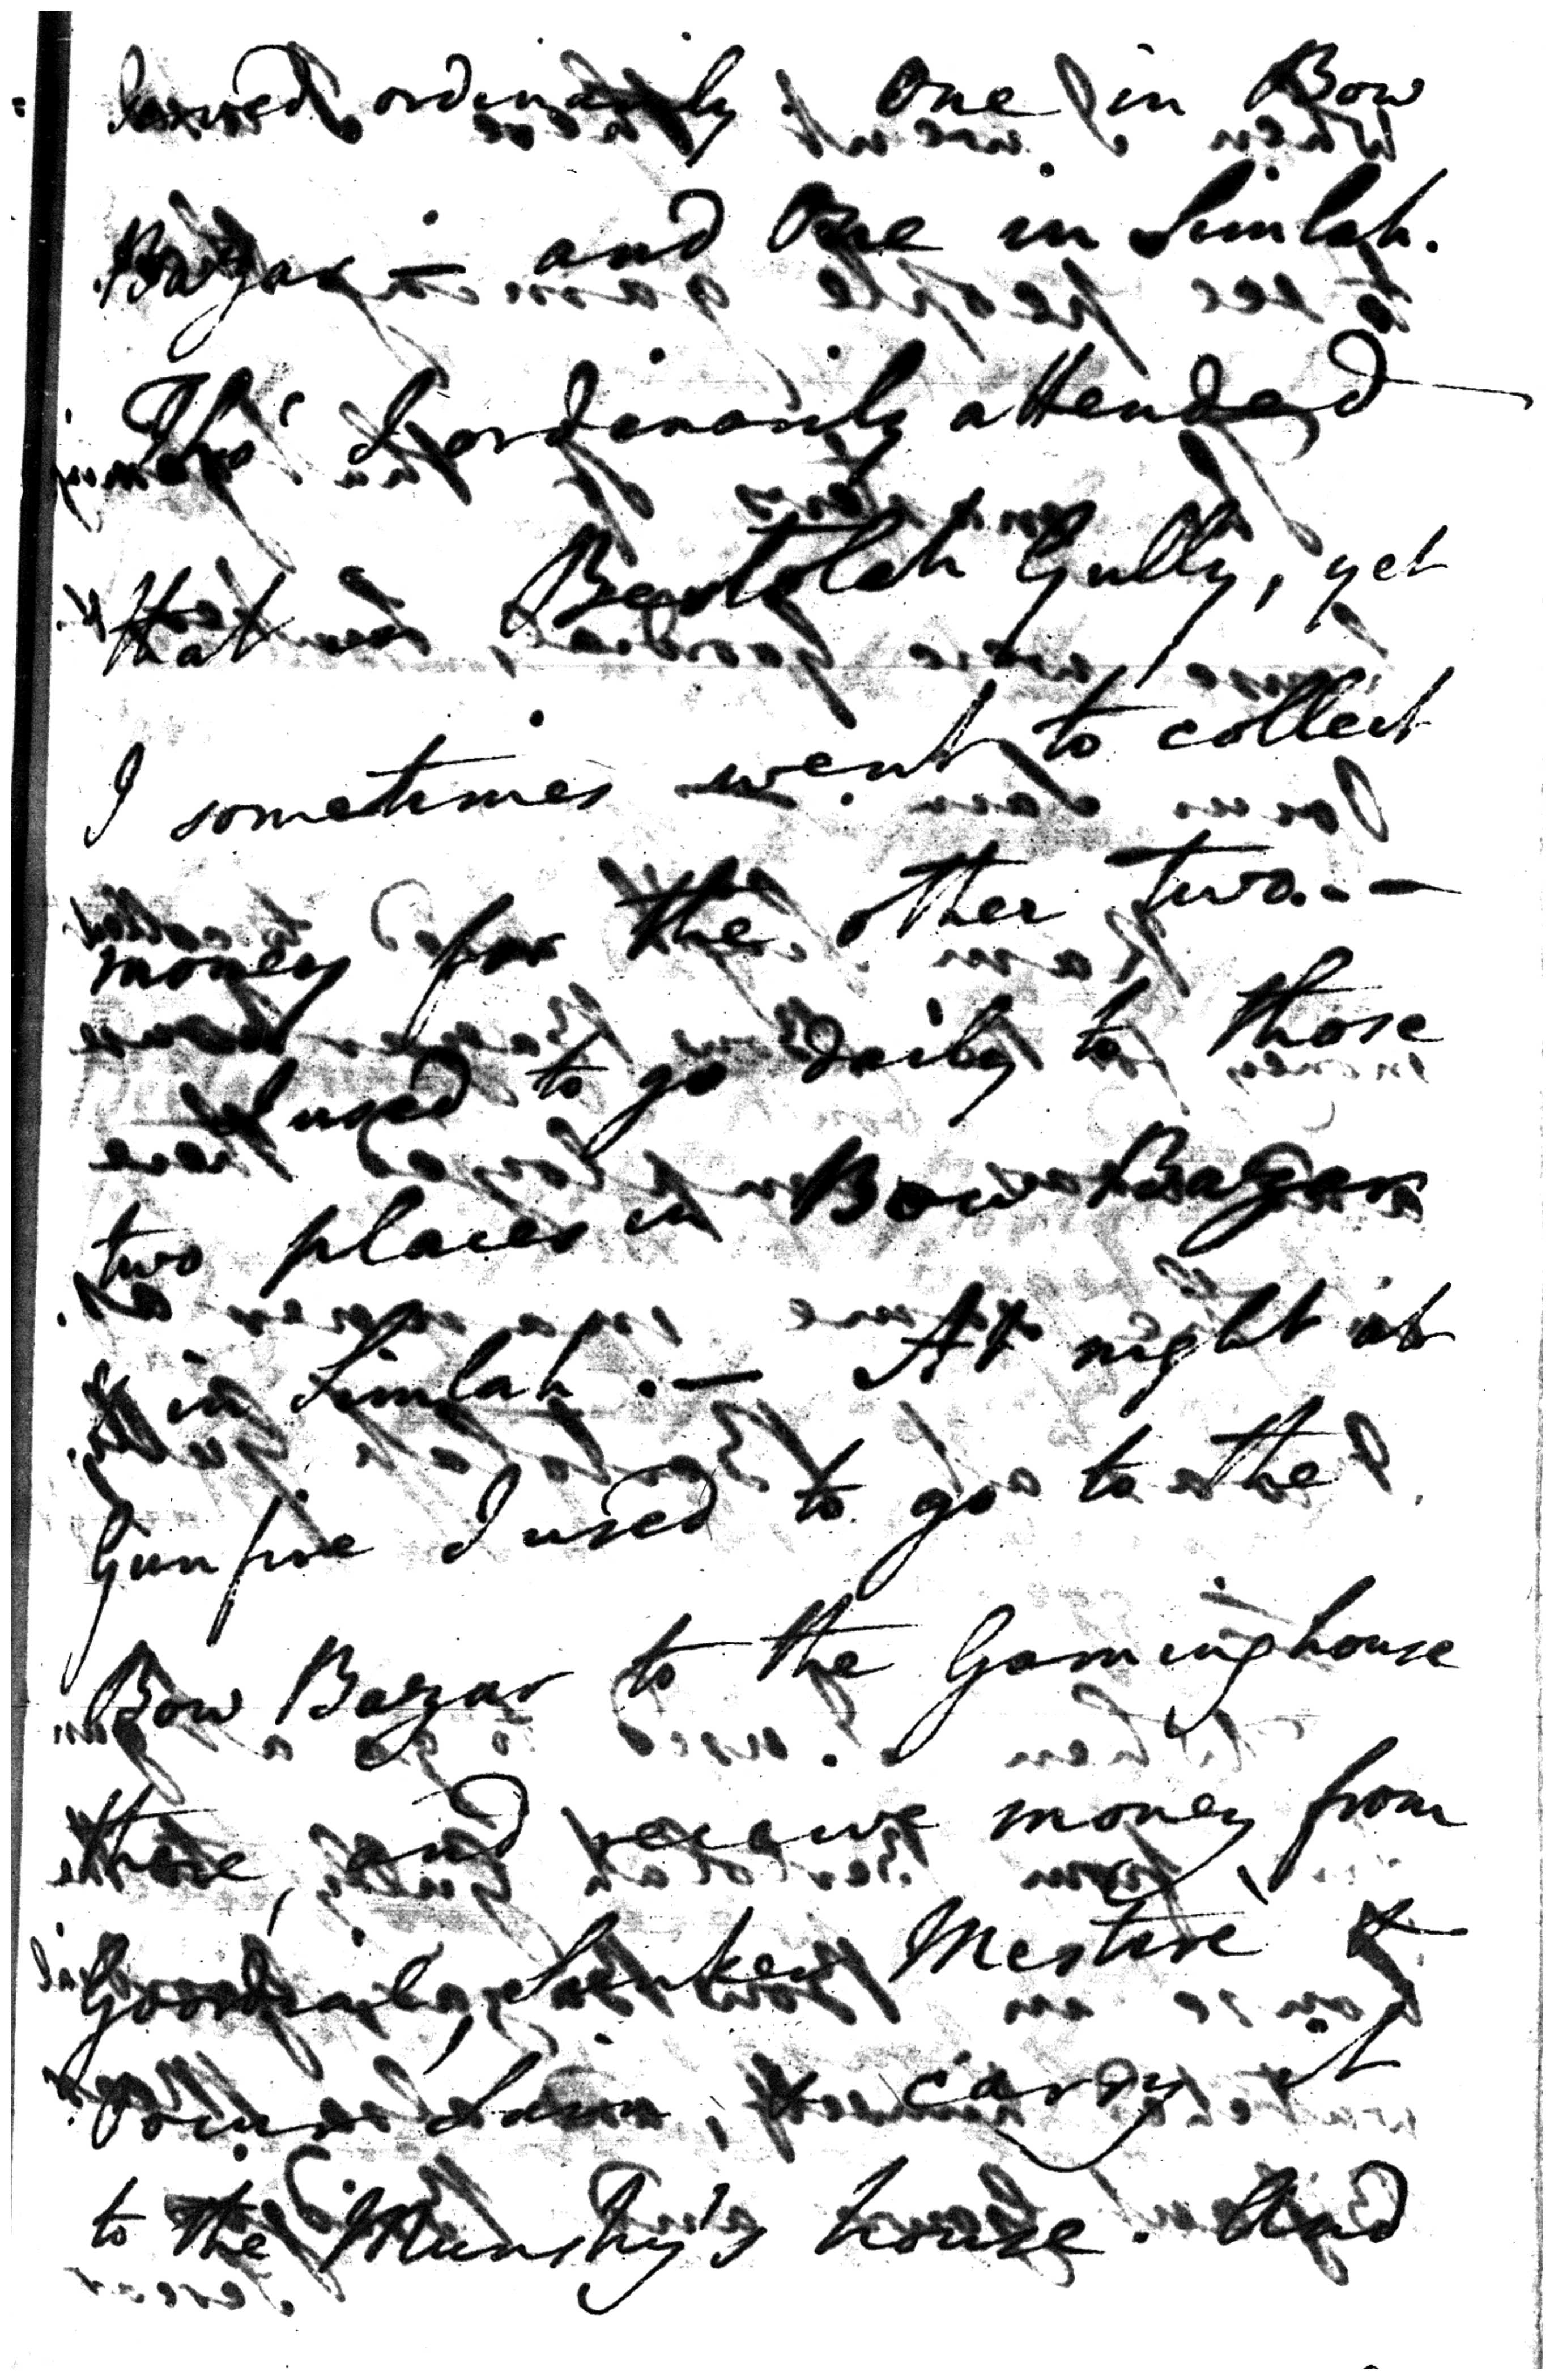 ordinarily. One in Bow
Bazar — and One in Simlah.
Tho' I ordinarily attended
that in Bertolah Gully, yet
I sometimes went to collect
money for the other two. —
I used to go daily to those
two places in Bow Bazar
& in Simlah. — At night at
Gunfire I used to go to the
Bow Bazar to the Gaminghouse
there, and receive money from
Mestree &
, & carry it
to the Munshy's house. And